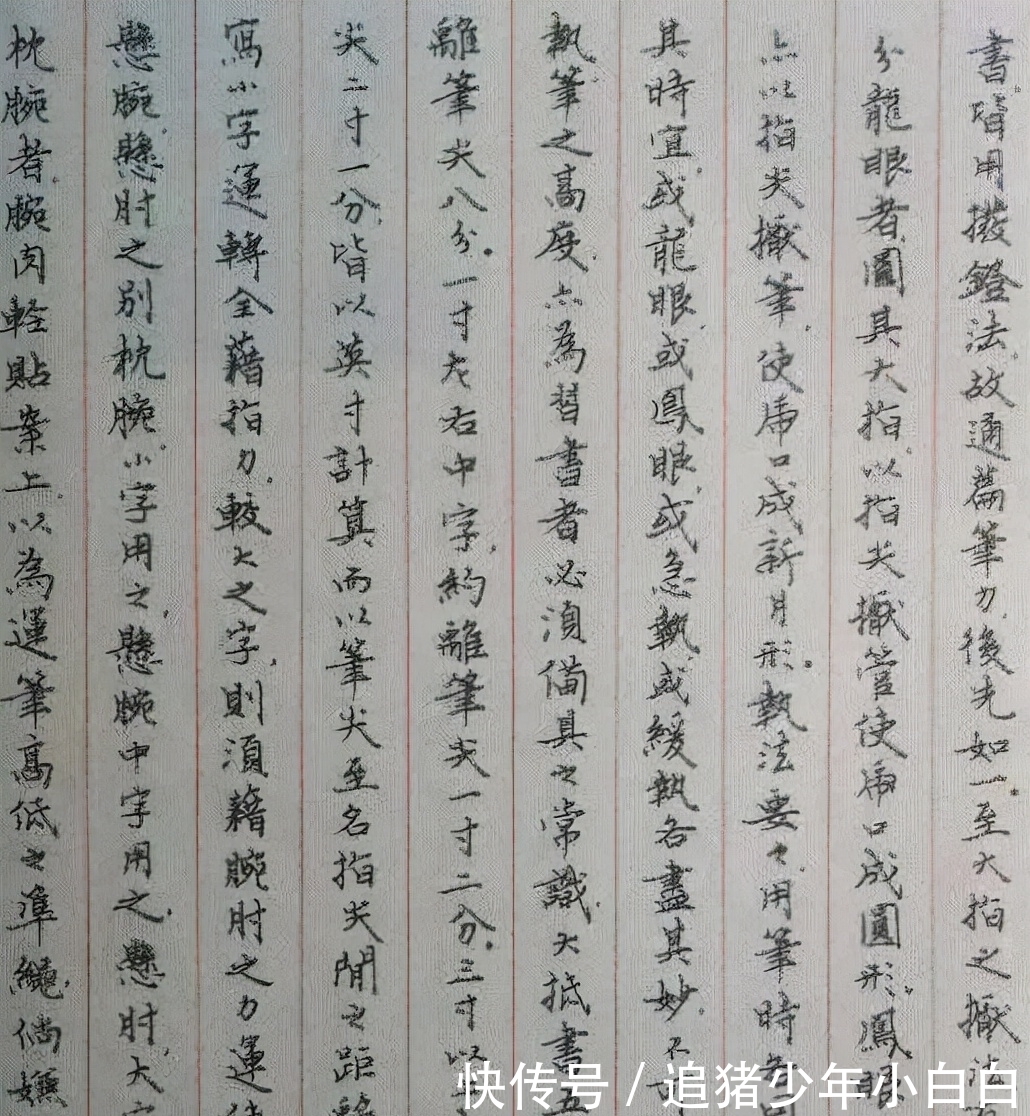 書皆用撥鐙法。故通篇筆力。後先如一。至大指之擫法
分龍眼者。圓其大指。以指尖擫管。使虎口成圓形。鳳眼
以指尖擫筆。使虎口成新月形。執法要之。用筆時
其時宜。或龍眼。或鳳眼。或急執。或緩執。各盡其妙。不可
執筆之高度。亦為習書者必須備具之常識。大抵書五
離筆尖八分。一寸左右中字。約離筆尖一寸二分。三寸以
尖二寸一分。皆以英寸計算。而以筆尖至名指尖間之距離
寫小字運轉全藉指力。較大之字。則須藉腕肘之力運
懸腕懸肘之別。枕腕。小字用之。懸腕中字用之。懸肘。大字
枕腕者。腕肉輕貼案上。以為運筆高低之準繩。倘
快传号 / 追猪少年小白白